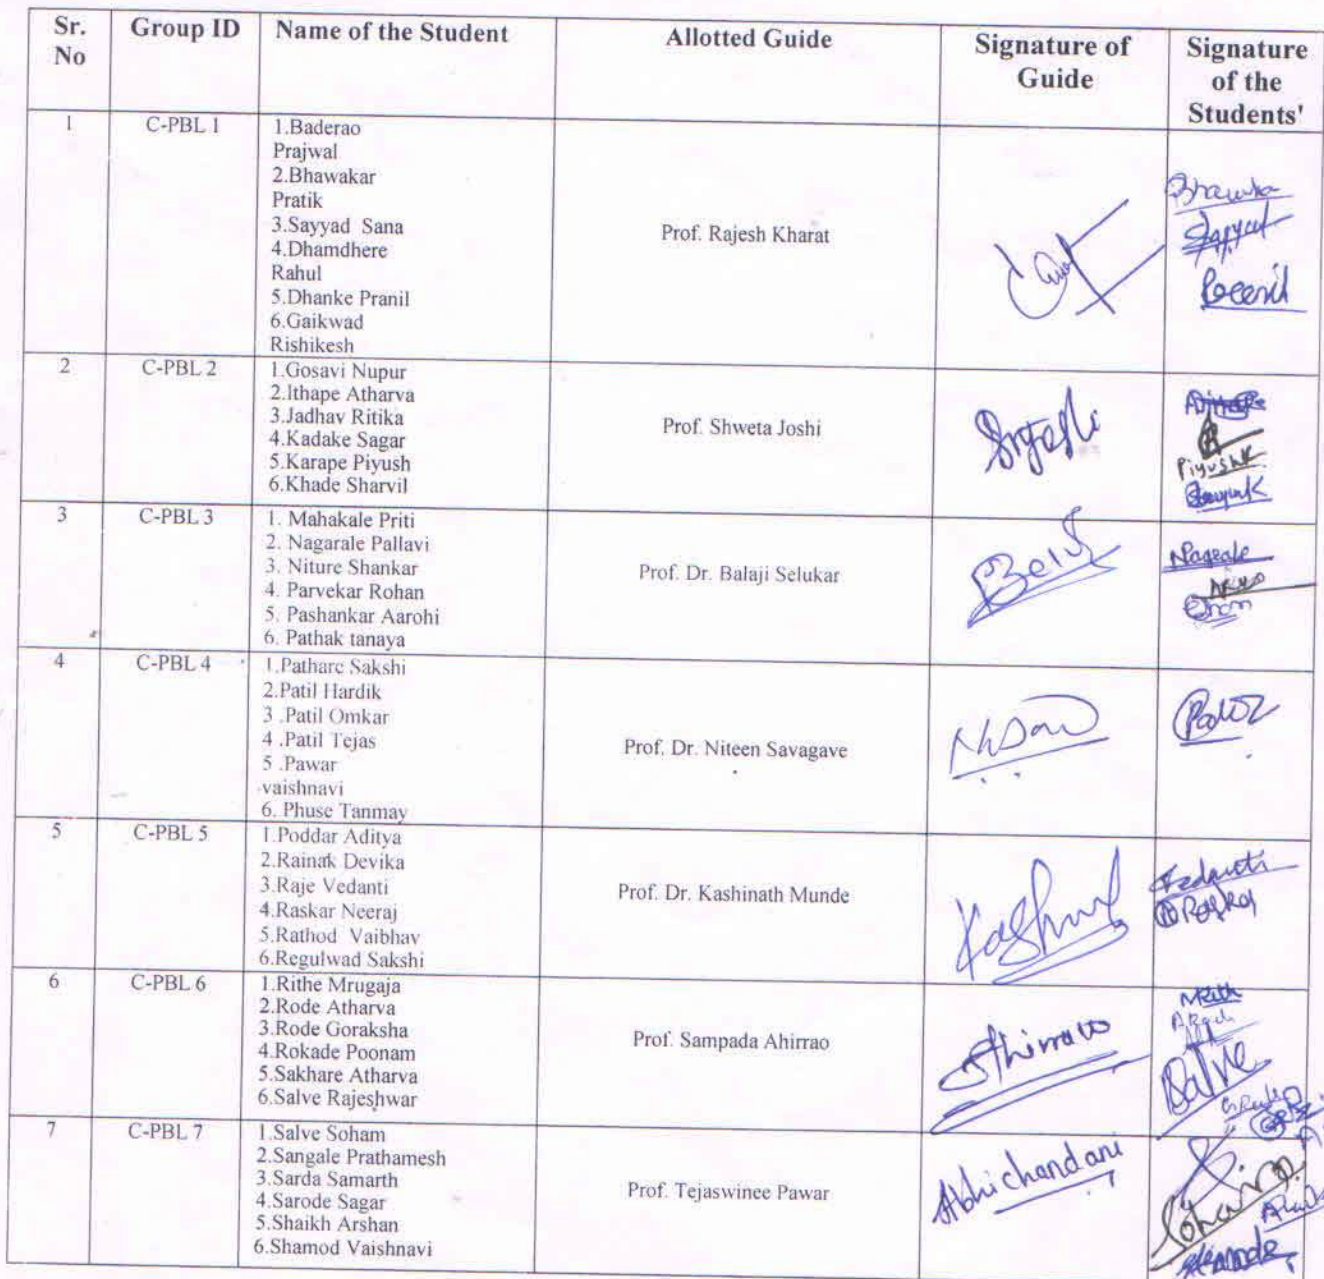 Sr. No Group ID Name of the Student Allotted Guide Signature of Guide Signature of the Students'
1 C-PBL 1 1.Baderao
Prajwal
2.Bhawakar
Pratik
3.Sayyad Sana
4.Dhamdhere
Rahul
5.Dhanke Pranil
6.Gaikwad
Rishikesh
Prof. Rajesh Kharat
2 C-PBL 2 1.Gosavi Nupur
2.Ithape Atharva
3.Jadhav Ritika
4.Kadake Sagar
5.Karape Piyush
6.Khade Sharvil
Prof. Shweta Joshi
PiyushK
3 C-PBL 3 1. Mahakale Priti
2. Nagarale Pallavi
3. Niture Shankar
4. Parvekar Rohan
5. Pashankar Aarohi
6. Pathak tanaya
Prof. Dr. Balaji Selukar
4 C-PBL 4 1.Pathare Sakshi
2.Patil Hardik
3 .Patil Omkar
4 .Patil Tejas
5 .Pawar
vaishnavi
6. Phuse Tanmay
Prof. Dr. Niteen Savagave
5 C-PBL 5 1.Poddar Aditya
2.Rainak Devika
3.Raje Vedanti
4.Raskar Neeraj
5.Rathod Vaibhav
6.Regulwad Sakshi
Prof. Dr. Kashinath Munde
6 C-PBL 6 1.Rithe Mrugaja
2.Rode Atharva
3.Rode Goraksha
4.Rokade Poonam
5.Sakhare Atharva
6.Salve Rajeshwar
Prof. Sampada Ahirrao
Ahirrao
Salve
7 C-PBL 7 1.Salve Soham
2.Sangale Prathamesh
3.Sarda Samarth
4.Sarode Sagar
5.Shaikh Arshan
6.Shamod Vaishnavi
Prof. Tejaswinee Pawar
Abhichandani